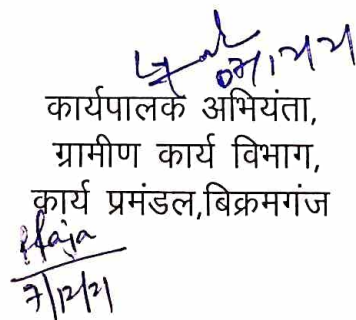 कार्यपालक अभियंता,
ग्रामीण कार्य विभाग,
कार्य प्रमंडल,बिक्रमगंज
7/12/21